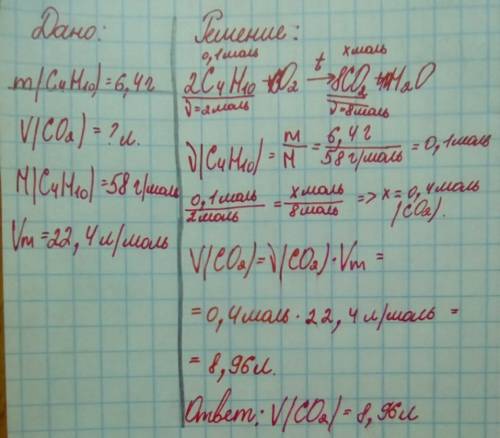 Дано:
m(C4H10)=6,4г
V(CO2)=?л.
M(C4H10)=58г/моль
Vm=22,4л/моль
Решение:
0,1моль xмоль
2C4H10 + O2 t→ 8CO2 + H2O
ν=2моль ν=8моль
ν(C4H10)=m/M=6,4г/58г/моль=0,1моль
0,1моль/2моль=xмоль/8моль => x=0,4моль
(CO2).
V(CO2)=ν(CO2)·Vm=
=0,4моль·22,4л/моль=
=8,96л.
Ответ: V(CO2)=8,96л